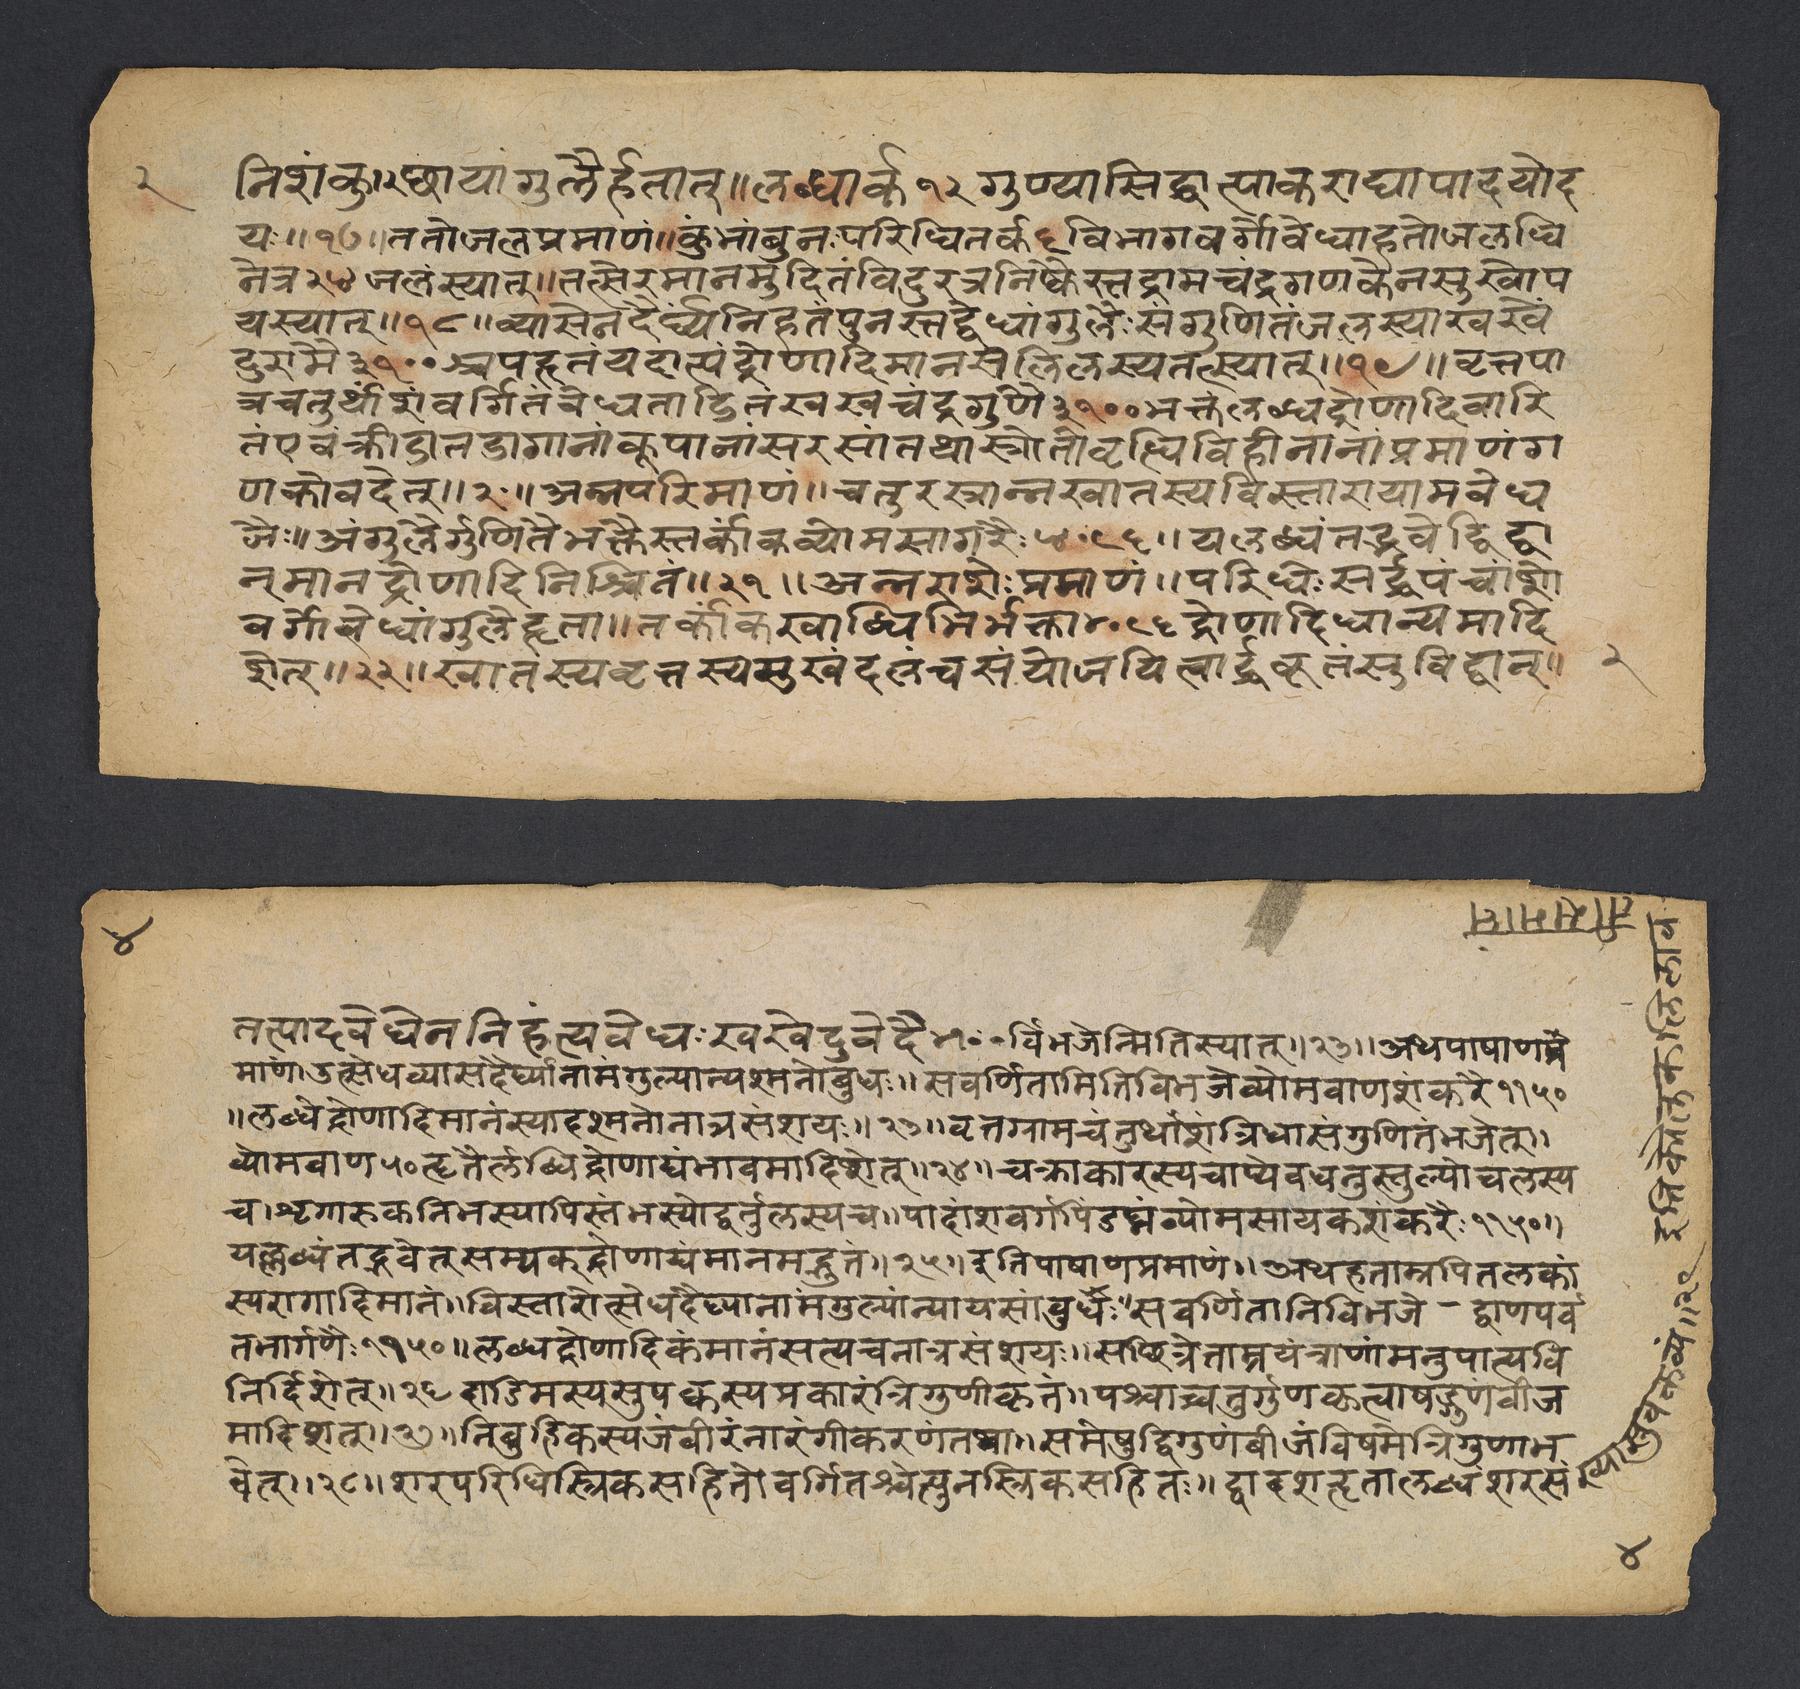 २
निशंकु।२छायांगुलैर्हतात्॥लब्धार्क१२गुण्यासिद्धात्पाकराघापादयोद
यः॥१७॥ततोजलप्रमाणं॥कुंभांबुनःपरिधितर्क६विभागवर्गोवेधाहतोजलधि
नेत्र२४जलंस्यात्॥तत्सेरमानमुदितंविदुरत्रनिष्केस्तद्रामचंद्रगणकेनसुखोप
यस्यात्॥१८॥व्यासेनदैर्घ्यनिहतंपुनस्तद्वेधांगुलैःसंगुणितंजलस्याखखें
दुरामै३१००श्चपहृतंयदाल्पंद्रोणादिमानंसलिलस्यतत्स्यात्॥१९॥वृत्तपा
त्रचतुर्थांशंवर्गितंवेधताडितंखखचंद्रगुणै३१००भक्तंलब्धद्रोणादिवारि
तंएवंक्रीडातडागानांकूपानांसरसांतथास्त्रोतोवृत्धिविहीनानांप्रमाणंग
णकोवदेत्॥२०॥अन्नपरिमाणं॥चतुरस्त्रान्नखातस्यविस्तारायामवेध
जैः॥अंगुलैर्गुणितैभक्तैस्तर्कांकव्योमसागरैः४०९६॥यलब्धंतद्भवेद्विद्वा
न्मानद्रोणादिनिश्चितं॥२१॥अन्नराशेःप्रमाणं॥परिधेःसर्द्धपंचांशो
वर्गोवेधांगुलैहृता॥तर्कांकखाब्धिभिर्भक्ता४०९६द्रोणादिधान्यमादि
शेत्॥२२॥खातस्यवृत्तस्यसुखंदलंचसंयोजयित्वार्द्धकृतंसुविद्वान्॥
२
४
तत्पादवेधेननिहंत्यवेधःखखेंदुवेदै४१००र्विभजेन्मितिस्यात्॥२३॥अथपाषाणप्र
माणं।उत्सेधव्यासदैर्घ्यानामंगुल्यान्यश्मनोबुधः॥सवर्णितामितिविभजेव्योमवाणशंकरै११५०
॥लब्धेद्रोणादिमानंस्यादश्मनोनात्रसंशयः॥२३॥वृत्तग्रामचंतुर्थांशंत्रिधासंगुणितंभजेत्॥
व्योमवाण५०हृतैर्लब्धिद्रोणाद्यंभावमादिशेत्॥२४॥चक्राकारस्यचाप्येवधनुस्तुल्योचलस्य
च।शृगारुकनिभस्यापिस्तंभस्योद्वर्तुलस्यच॥पादांशवर्गपिंडघ्नंव्योमसायकशंकरैः११५०॥
यल्लब्धंतद्भवेत्सम्यक्द्रोणाद्यंमानमद्भुतं॥२५॥इतिपाषाणप्रमाणं॥अथहताम्रपितलकां
स्यरागादिमानं॥विस्तारोत्सेधदैघ्यानामंगुल्यांन्यायसांबुधैः॥सवर्णितानिविभजे-द्बाणपर्व
तमार्गणैः११५०॥लब्धद्रोणादिकंमानंसत्यचनात्रसंशयः॥सछिद्रेताम्रयंत्राणांमनुपात्यवि
निर्दिशेत्॥२६दाडिमस्यसुपक्वस्यप्रकारंत्रिगुणीकृतं॥पश्चाच्चतुर्गुणकृत्वाषड्गुणंबीज
मादिशेत्॥२७॥निवुहिकस्यजंवीरंनारंगीकरणंतथा॥समेषुद्विगुणंबीजंविषमेत्रिगुणाभ
वेत्॥२८॥शरपरिधिस्त्रिकसहितोवर्गितश्चेत्पुनस्त्रिकसहितः॥द्वादशहृतालब्धंशरसं
४